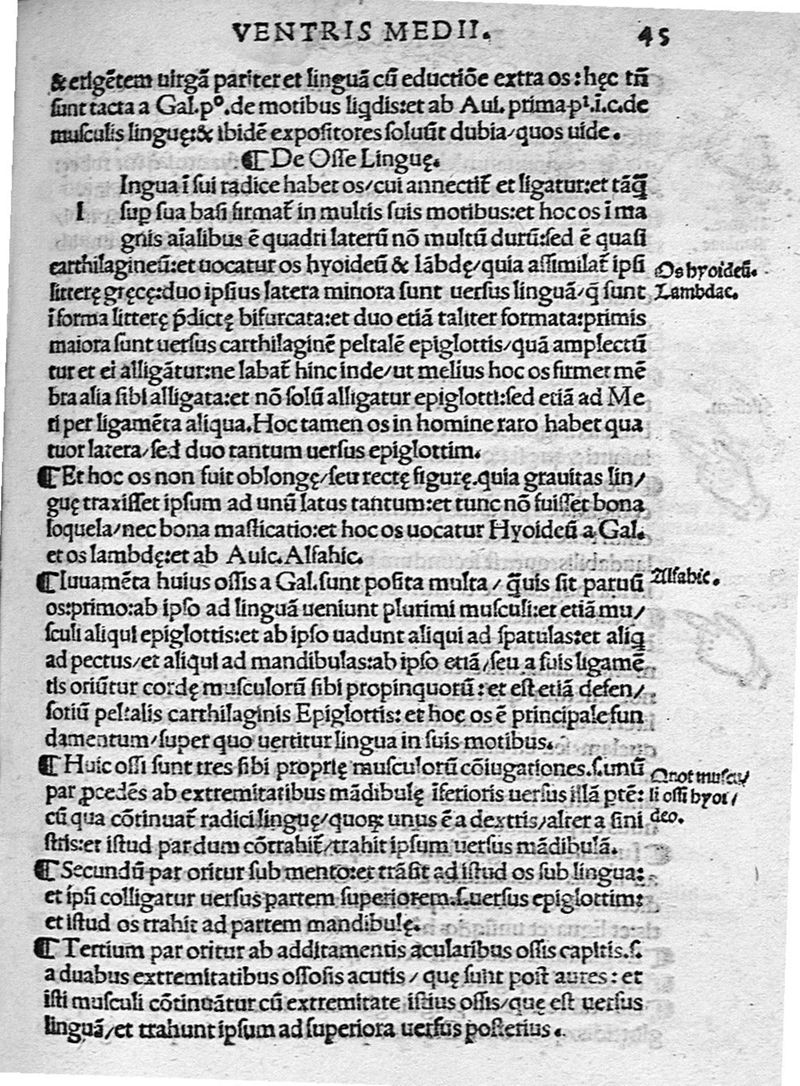 VENTRIS MEDII. 45
& erigẽtem uirgã pariter et linguã cũ eductiõe extra os : hęc tñ
ſunt tacta a Gal. pº. de motibus liqdis: et ab Aui. prima pⁱ. ĩ. c. de
muſculis linguę: & ibidẽ expoſitores ſoluũt dubia / quos uide.
⸿ De Oſſe Linguę.
Ingua ĩ ſui radice habet os / cui annectit̃ et ligatur: et tãq̃
l ſup ſua baſi firmat̃ in multis ſuis motibus: et hoc os ĩ ma
gnis aĩalibus ẽ quadri laterũ nõ multũ durũ: ſed ẽ quaſi
carthilagineũ: et uocatur os hyoideũ & lãbdę / quia aſſimilat̃ ipſi
Os hyoideũ.
litterę gręcę: duo ipſius latera minora ſunt uerſus linguã / q̃ ſunt
Lambdac.
ĩ forma litterę p̃dictę bifurcata: et duo etiã taliter formata: primis
maiora ſunt uerſus carthilaginẽ peltalẽ epiglottis / quã amplectũ
tur et ei alligãtur: ne labat̃ hinc inde / ut melius hoc os firmet mẽ
bra alia ſibi alligata: et nõ ſolũ alligatur epiglotti: ſed etiã ad Me
ri per ligamẽta aliqua. Hoc tamen os in homine raro habet qua
tuor latera / ſed duo tantum uerſus epiglottim.
⸿ Et hoc os non fuit oblongę / ſeu rectę figurę. quia grauitas lin /
guę traxiſſet ipſum ad unũ latus tantum: et tunc nõ fuiſſet bona
loquela / nec bona maſticatio: et hoc os uocatur Hyoideũ a Gal.
et os lambdę: et ab Auic. Alfahic.
⸿ Iuuamẽta huius oſſis a Gal. ſunt poſita multa / q̃uis ſit paruũ
Alfahic.
os: primo: ab ipſo ad linguã ueniunt plurimi muſculi: et etiã mu /
ſculi aliqui epiglottis: et ab ipſo uadunt aliqui ad ſpatulas: et aliq̃
ad pectus / et aliqui ad mandibulas: ab ipſo etiã / ſeu a ſuis ligamẽ
tis oriũtur cordę muſculorũ ſibi propinquorũ : et eſt etiã defen /
ſoriũ peltalis carthilaginis Epiglottis: et hoc os ẽ principale fun
damentum / ſuper quo uertitur lingua in ſuis motibus.
⸿ Huic oſſi ſunt tres ſibi proprię muſculorũ cõiugationes. ſ. unũ
Quot muſcu /
par ꝓcedẽs ab extremitatibus mãdibulę ĩferioris uerſus illã ptẽ:
li oſſi hyoi /
cũ qua cõtinuat̃ radici linguę / quoꝝ unus ẽ a dextris / alter a ſini
deo.
ſtris: et iſtud par dum cõtrahit̃ / trahit ipſum uerſus mãdibulã.
⸿ Secundũ par oritur ſub mento: et trãſit ad iſtud os ſub lingua:
et ipſi colligatur uerſus partem ſuperiorem. ſ. uerſus epiglottim:
et iſtud os trahit ad partem mandibulę.
⸿ Tertium par oritur ab additamentis acularibus oſſis capitis. ſ.
a duabus extremitatibus oſſoſis acutis / quę ſunt poſt aures : et
iſti muſculi cõtinuãtur cũ extremitate iſtius oſſis / quę eſt uerſus
linguã / et trahunt ipſum ad ſuperiora uerſus poſterius.